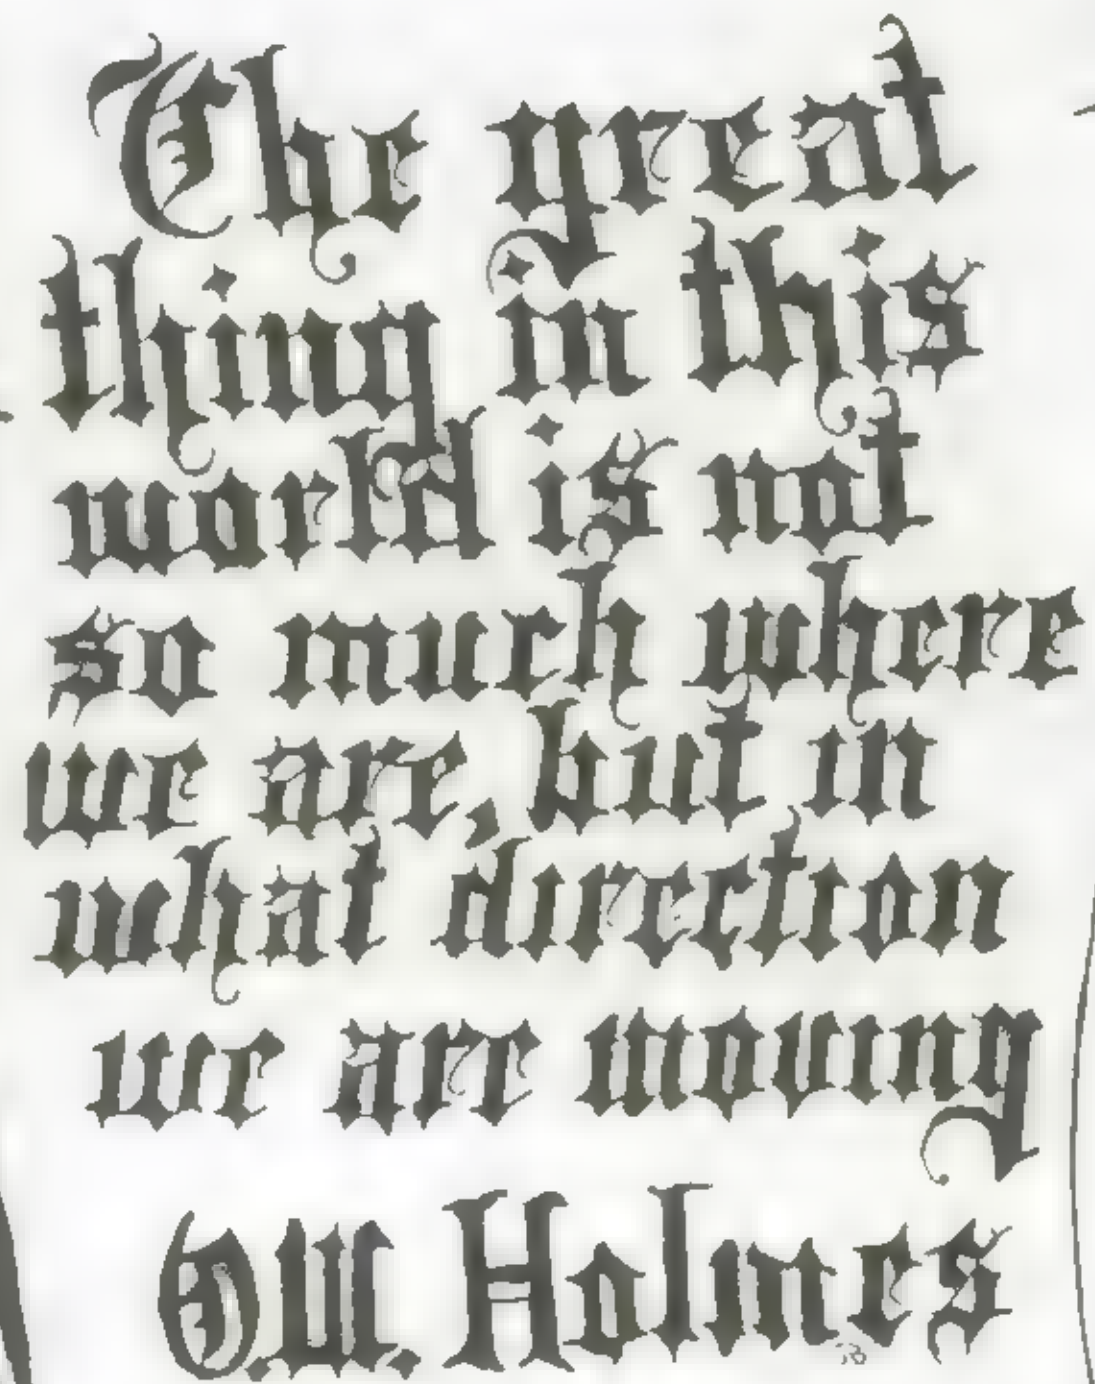 The great
thing in this
world is not
so much where
we are, but in
what direction
we are moving
O.W. Holmes